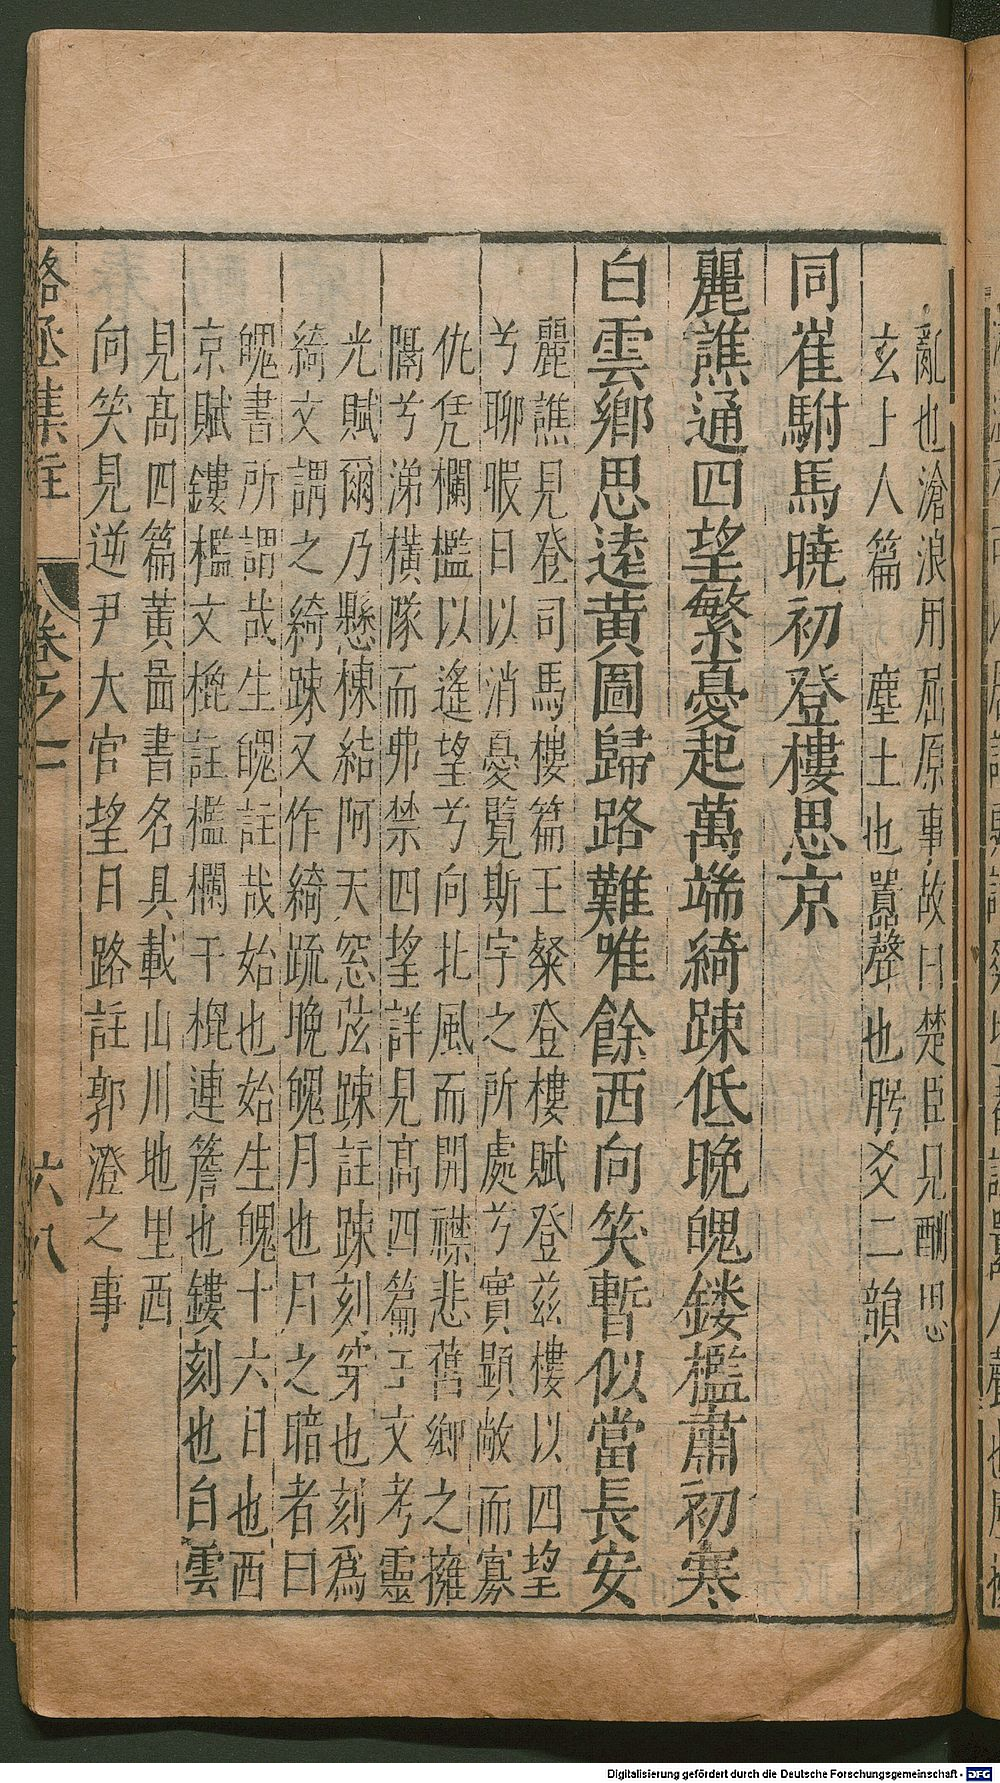 亂也滄浪用屈原事故曰楚臣見酬思
玄上人篇　塵土也囂聲也肹爻二韻
同崔駙馬曉初登樓思京
麗譙通四望繁憂起萬端綺踈低晚魄鏤檻肅初寒
白雲鄉思遠黃圖歸路難唯餘西向笑暫似當長安
麗譙見登司馬樓篇王粲登樓賦登兹樓以四望
兮聊暇日以消憂覽斯宇之所處兮實顯敞而寡
仇凭欄檻以遙望兮向北風而開襟悲舊鄉之擁
隔兮涕橫隊而弗禁四望詳見高四篇王文考靈
光賦爾乃懸棟結阿天窓弦踈註踈刻穿也刻爲
綺文謂之綺踈又作綺疏晚魄月也月之暗者曰
魄書所謂哉生魄註哉始也始生魄十六日也西
京賦鏤檻文㮰註檻欄干㮰連簷也鏤刻也白雲
見高四篇黃啚書名具載山川地里西
向笑見逆尹大官望日路註郭澄之事
駱丞集註　卷之一　六八
Digitalisierung gefördert durch die Deutsche Forschungsgemeinschaft - DFG